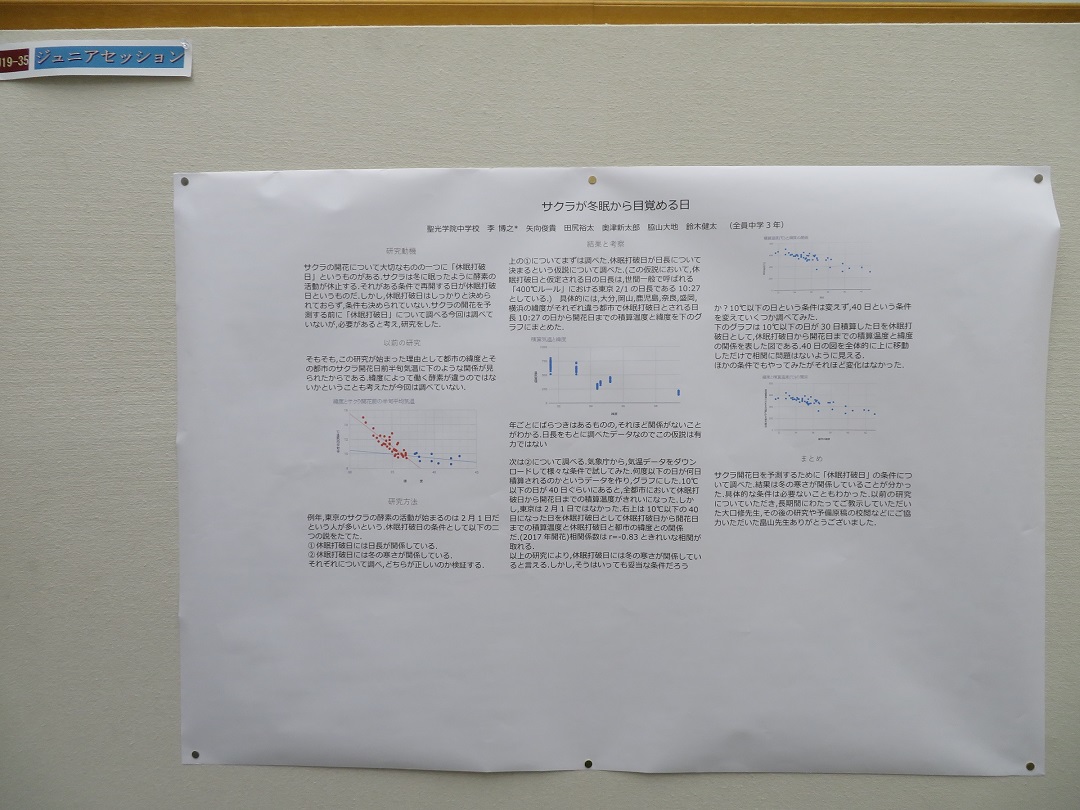 J19-35 ジュニアセッション
サクラが冬眠から目覚める日
聖光学院中学校 李 博之* 矢向俊貴 田尻裕太 奥津新太郎 脇山大地 鈴木健太 (全員中学3年)
研究動機
サクラの開花について大切なものの一つに「休眠打破
日」というものがある.サクラは冬に眠ったように酵素の
活動が休止する.それがある条件で再開する日が休眠打破
日というものだ.しかし,休眠打破日はしっかりと決めら
れておらず,条件も決められていない.サクラの開花を予
測する前に「休眠打破日」について調べる今回は調べて
いないが,必要があると考え,研究をした.
以前の研究
そもそも,この研究が始まった理由として都市の緯度とそ
の都市のサクラ開花日前半旬気温に下のような関係が見
られたからである.緯度によって働く酵素が違うのではな
いかということも考えたが今回は調べていない.
緯度とサクラの開花前の半旬平均気温
研究方法
例年,東京のサクラの酵素の活動が始まるのは2月1日だ
という人が多いという.休眠打破日の条件として以下の二
つの説をたてた.
①休眠打破日には日長が関係している.
②休眠打破日には冬の寒さが関係している.
それぞれについて調べ,どちらが正しいのか検証する.
結果と考察
上の①についてまずは調べた.休眠打破日が日長について
決まるという仮説について調べた.(この仮説において,休
眠打破日と仮定される日の日長は,世間一般で呼ばれる
「400℃ルール」における東京2/1の日長である10:27
としている.) 具体的には,大分,岡山,鹿児島,奈良,盛岡,
横浜の緯度がそれぞれ違う都市で休眠打破日とされる日
長10:27の日から開花日までの積算温度と緯度を下のグ
ラフにまとめた.
積算気温と緯度
年ごとにばらつきはあるものの,それほど関係がないこと
がわかる.日長をもとに調べたデータなのでこの仮説は有
力ではない
次は②について調べる.気象庁から,気温データをダウン
ロードして様々な条件で試してみた.何度以下の日が何日
積算されるのかというデータを作り,グラフにした.10℃
以下の日が40日ぐらいにあると,全都市において休眠打
破日から開花日までの積算温度がきれいになった.しか
し,東京は2月1日ではなかった.右上は10℃以下の40
日になった日を休眠打破日として休眠打破日から開花日
までの積算温度と休眠打破日と都市の緯度との関係
だ.(2017年開花)相関係数はr=-0.83ときれいな相関が
取れる.
以上の研究により,休眠打破日には冬の寒さが関係してい
ると言える.しかし,そうはいっても妥当な条件だろう
か?10℃以下の日という条件は変えず,40日という条件
を変えていくつか調べてみた.
下のグラフは10℃以下の日が30日積算した日を休眠打
破日として,休眠打破日から開花日までの積算温度と緯度
の関係を表した図である.40日の図を全体的に上に移動
しただけで相関に問題はないように見える.
ほかの条件でもやってみたがそれほど変化はなかった.
まとめ
サクラ開花日を予測するために「休眠打破日」の条件につ
いて調べた.結果は冬の寒さが関係していることが分かっ
た.具体的な条件は必要ないこともわかった.以前の研究
についていただき,長期間にわたってご教示していただい
た大口修先生,その後の研究や予備原稿の校閲などにご協
力いただいた畠山先生ありがとうございました.